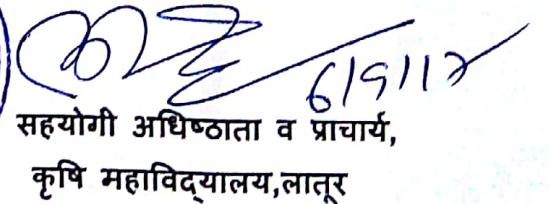 सहयोगी अधिष्ठाता व प्राचार्य,
कृषि महाविद्यालय,लातूर